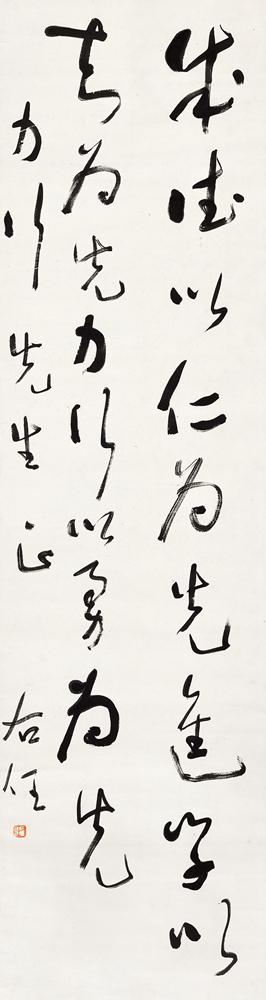 成德以仁為先進學以
知為先力行以勇為先
力行先生正
右任